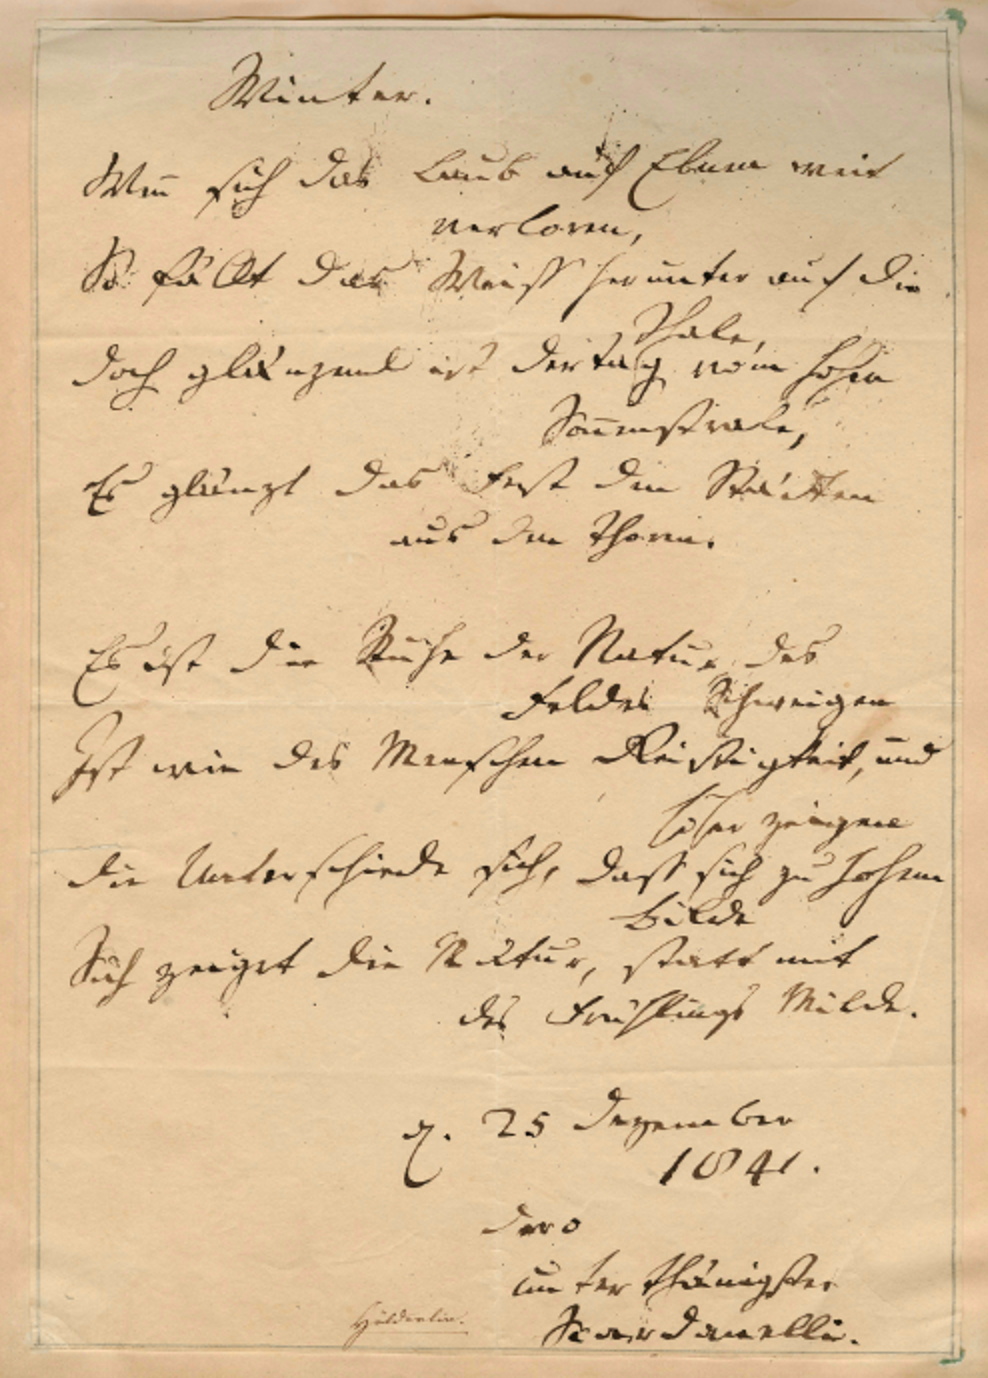 Winter.
Wen̄ sich das Laub auf Ebnen weit
verloren,
So fällt das Weiss herunter auf die
Thale,
doch glänzend ist der tag vom hohen
Son̄enstrale,
Es glänzt das Fest den Städten
aus den Thoren.
Es ist die Ruhe der Natur, des
Feldes Schweigen
Ist wie des Menschen Geistigkeit, und
höher zeigen
die Unterschiede sich, dass sich zu hohem
Bilde
Sich zeiget die Natur, statt mit
des Frühlings Milde.
d. 25 Dezember
1841.
dero
unterthänigster
Scardanelli.
Hölderlin.